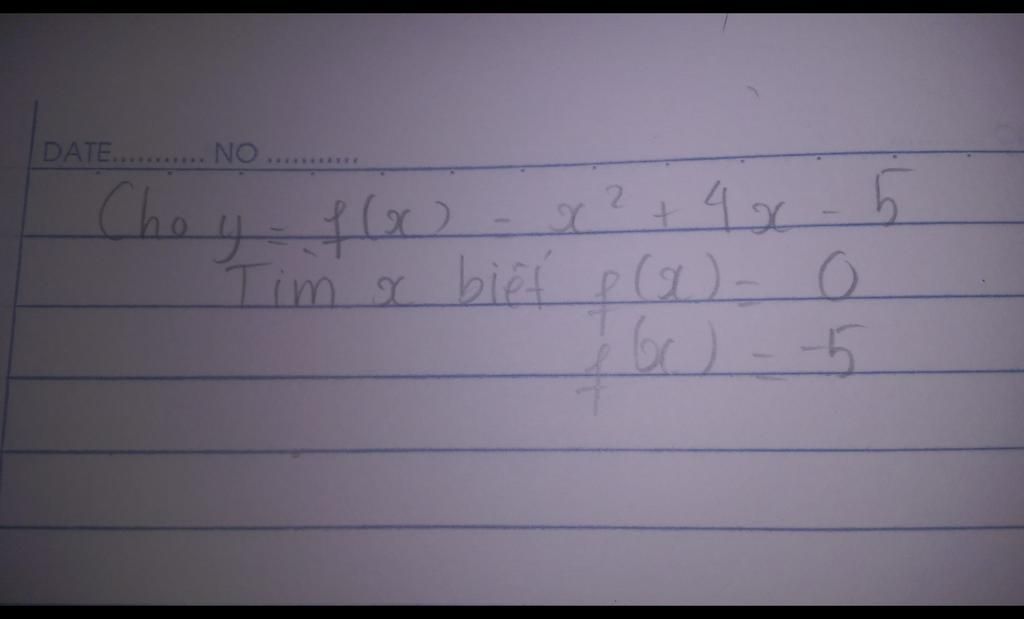 DATE........... NO ...........
Cho y = f(x) = x² + 4x - 5
Tìm x biết f(x) = 0
f(x) = -5